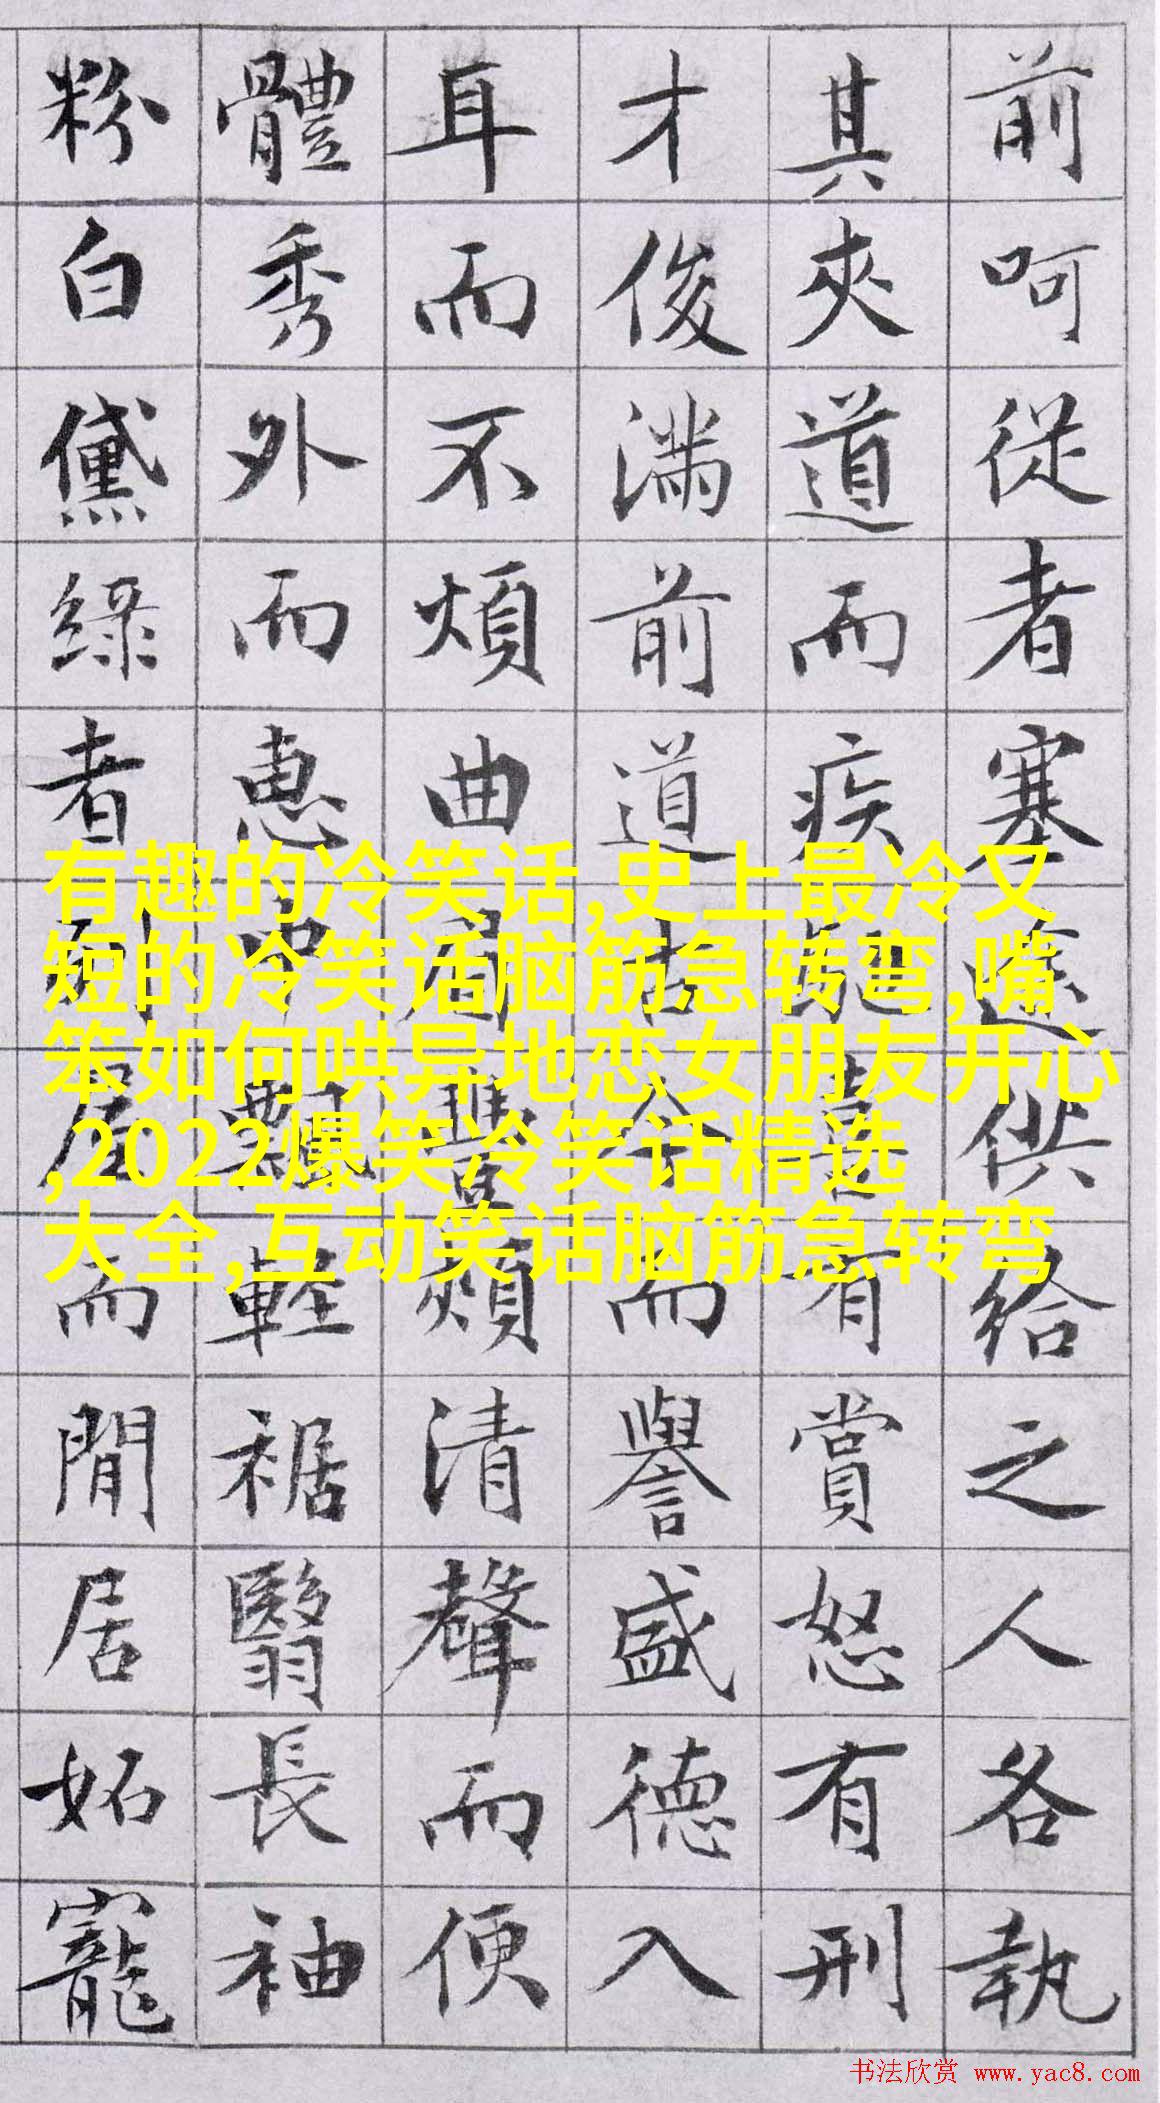 前呵從者塞途供給之人各執
其夾道而疾馳喜有賞怒有刑
才俊满前道古今而譽盛德入
耳而不煩曲眉豐頰清聲而便
體秀外而惠中飄輕裾翳長袖
粉白黛綠者列屋而閒居妬寵
有趣的冷笑话,史上最冷又
短的冷笑话脑筋急转弯,嘴
笨如何哄异地恋女朋友开心
,2022爆笑冷笑话精选
大全,互动笑话脑筋急转弯
书法欣赏 www.yac8.com